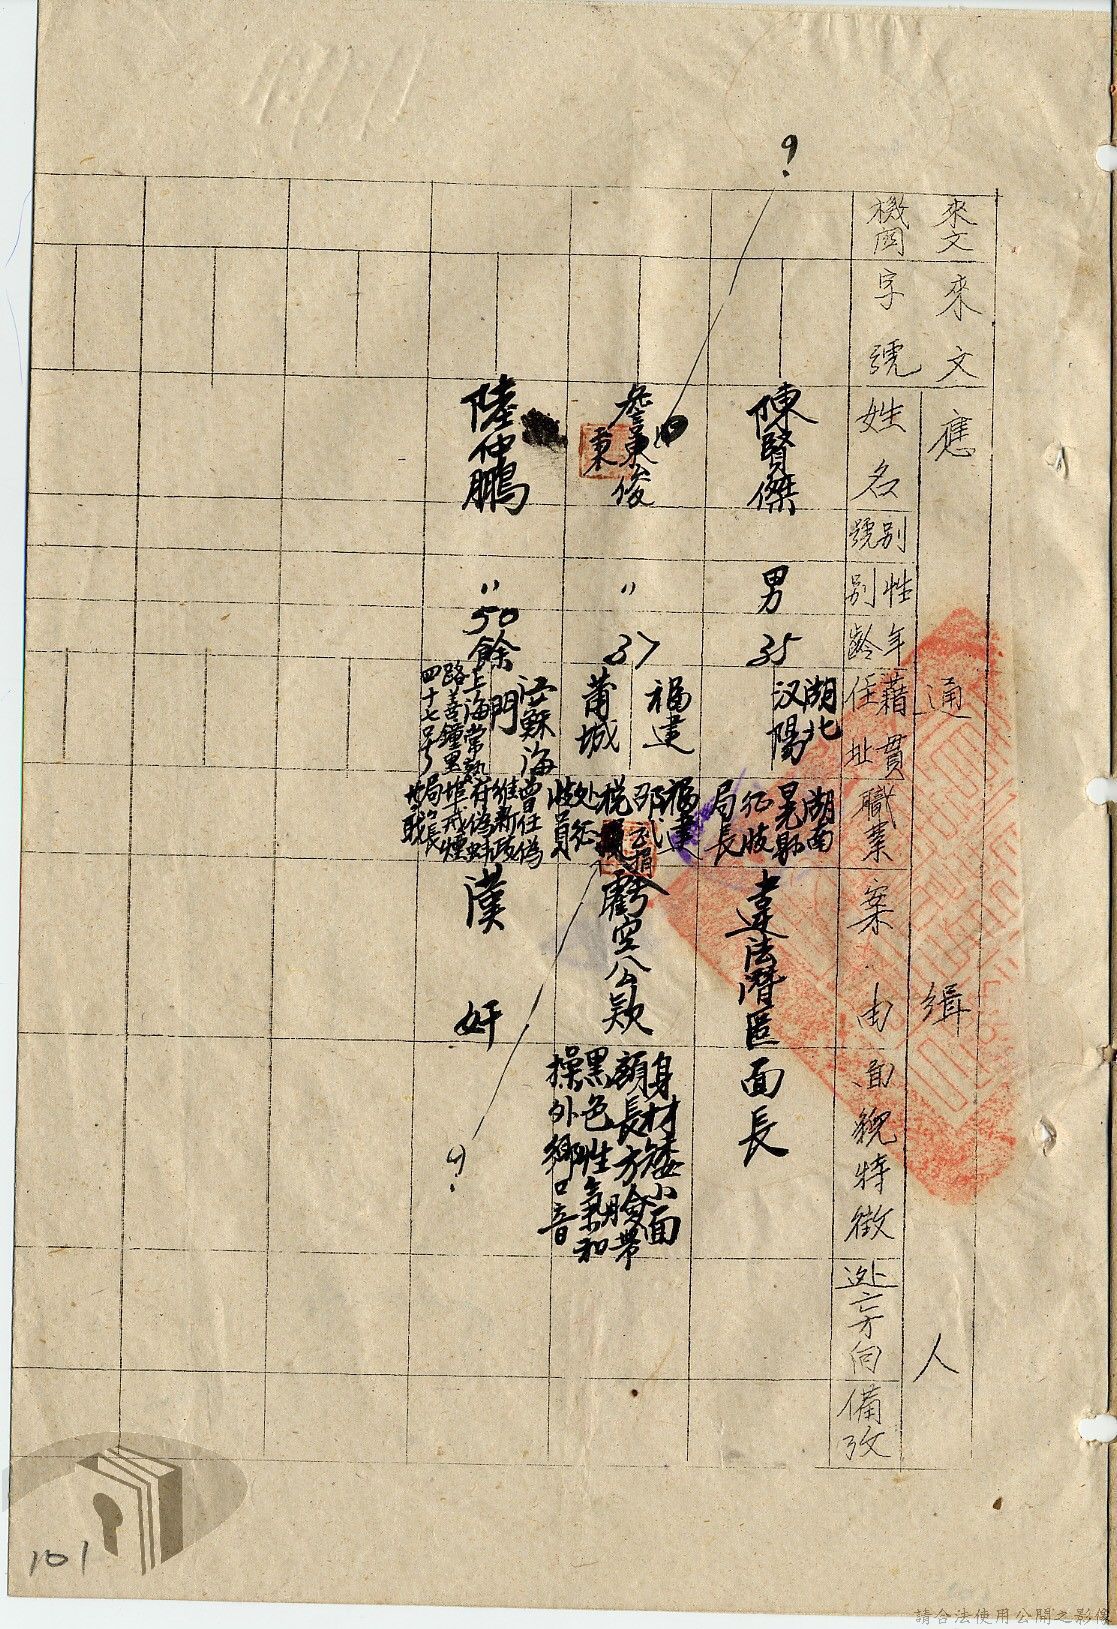 來文機関
來文字號
應通緝人
姓名
別號
性別
年齡
籍貫
住址
職業
案由
面貌特徵
逃亡方向
備攷
陳賢傑
男
35
湖北
汉陽
湖南
晃縣
征收
局長
違法潛匿
面長
?
詹東俊
秉
〃
37
福建
莆城
福建
邵武
税
处征
收員
虧空公款
身材矮小面
顏長方臉帶
黑色性氣和
操外鄉口音
?
陸仲鵬
〃
50餘
江蘇海
門
上海常熟
路善鐘里
四十七号
曾任偽
維新政
府偽蚌
埠戒煙
局局長
漢奸
101
請合法使用公開之影像